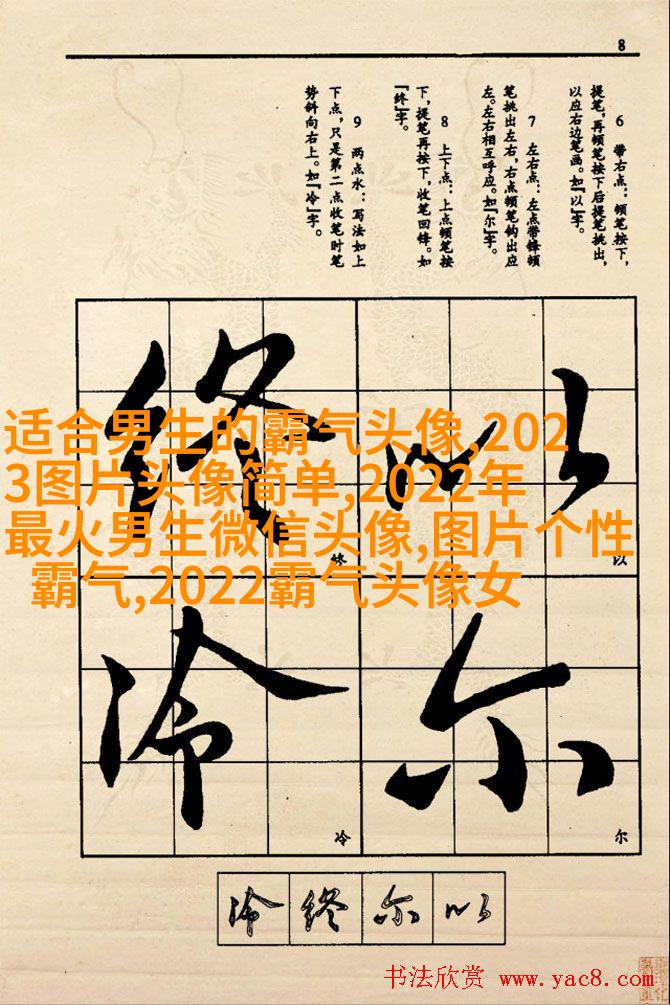 8
6 带右点：顿笔按下，
提笔，再顿笔按下后提笔挑出，
以应右边笔画。如『以』字。
7 左右点：左点带锋顿
笔挑出左右，右点顿笔钩出应
左。左右相互呼应。如『尔』字。
8 上下点：上点顿笔按
下，提笔再按下，收笔回锋。如
『终』字。
9 两点水：写法如上
下点，只是第二点收笔时笔
势斜向右上。如『冷』字。
终 以
终 以
适合男生的霸气头像,202
3图片头像简单,2022年
最火男生微信头像,图片个性
霸气,2022霸气头像女
冷 尔
冷 尔
冷 终 尔 以
书法欣赏 www.yac8.com